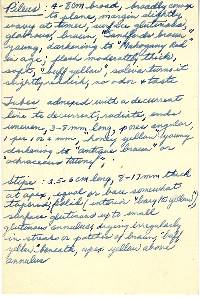 Pileus: 4-8 cm broad, broadly convex
to plane, margin slightly
wavy at times, surface glutinous,
glabrous, brown,
young, darkening to "Mahogany Red"
in age, flesh moderately thick,
soft, "buff yellow", turns it
slightly no odor + taste
Tubes adnexed with a decurrent
line to decurrent, radiate, ends
uneven, 3-7 mm long, pores angular,
1 per 1 + mm, "honey yellow" young
darkening to "antique brown" or
"ochraceous tawny".
Stipe: 3.5-6 cm long, 8-17 mm thick
at apex, equal or base somewhat
tapered, solid, interior
surface glutinous up to small
glutinous annulus, drying irregularly
in streaks or patches of brown, "buff
yellow" beneath, apex yellow above
annulus